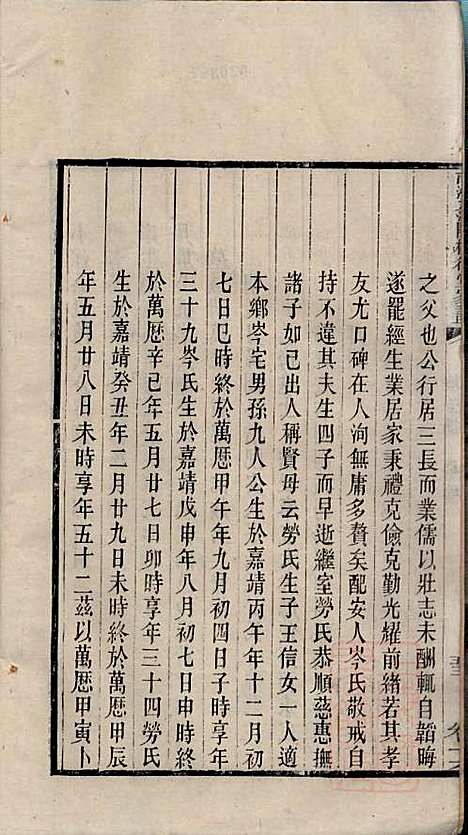 之父也公行居三長而業儒以壯志未酬輒自韜晦
遂罷經生業居家秉禮克儉克勤光耀前緒若其孝
友尤口碑在人洵無庸多贅矣配安人岑氏敬戒自
持不違其夫生四子而早逝繼室勞氏恭順慈惠撫
諸子如已出人稱賢母云勞氏生子王信女一人適
本鄉岑宅男孫九人公生於嘉靖丙午年十二月初
七日巳時終於萬歷甲午年九月初四日子時享年
三十九岑氏生於嘉靖戊申年八月初七日申時終
於萬歷辛巳年五月廿七日卯時享年三十四勞氏
生於嘉靖癸丑年二月廿九日未時終於萬歷甲辰
年五月廿八日未時享年五十二茲以萬歷甲寅卜